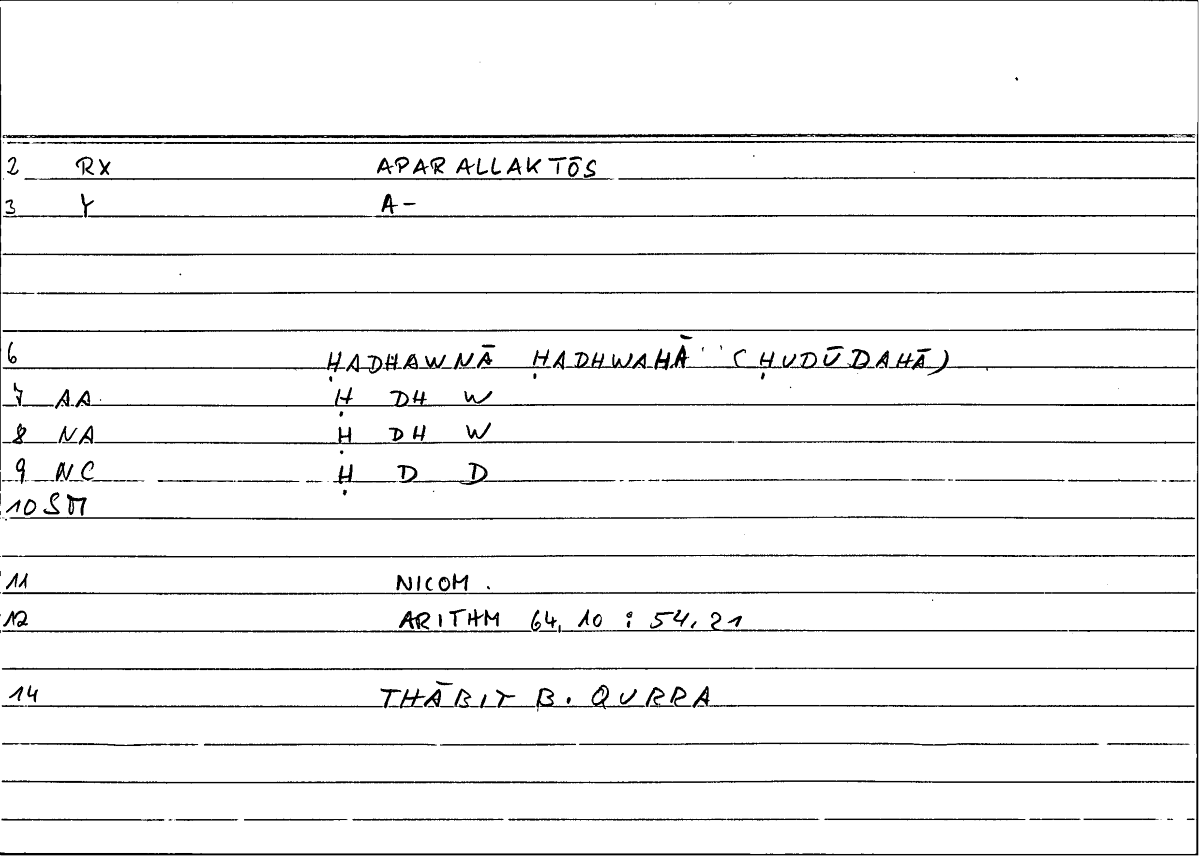 2 RX APARALLAKTŌS
3 Y A-
6 ḤADHAWNĀ ḤADHWAHĀ (ḤUDŪDAHĀ)
7 AA Ḥ DH W
8 NA Ḥ DH W
9 NC Ḥ D D
10 SM
11 NICOM.
12 ARITHM 64, 10 : 54, 21
14 THĀBIT B. QURRA